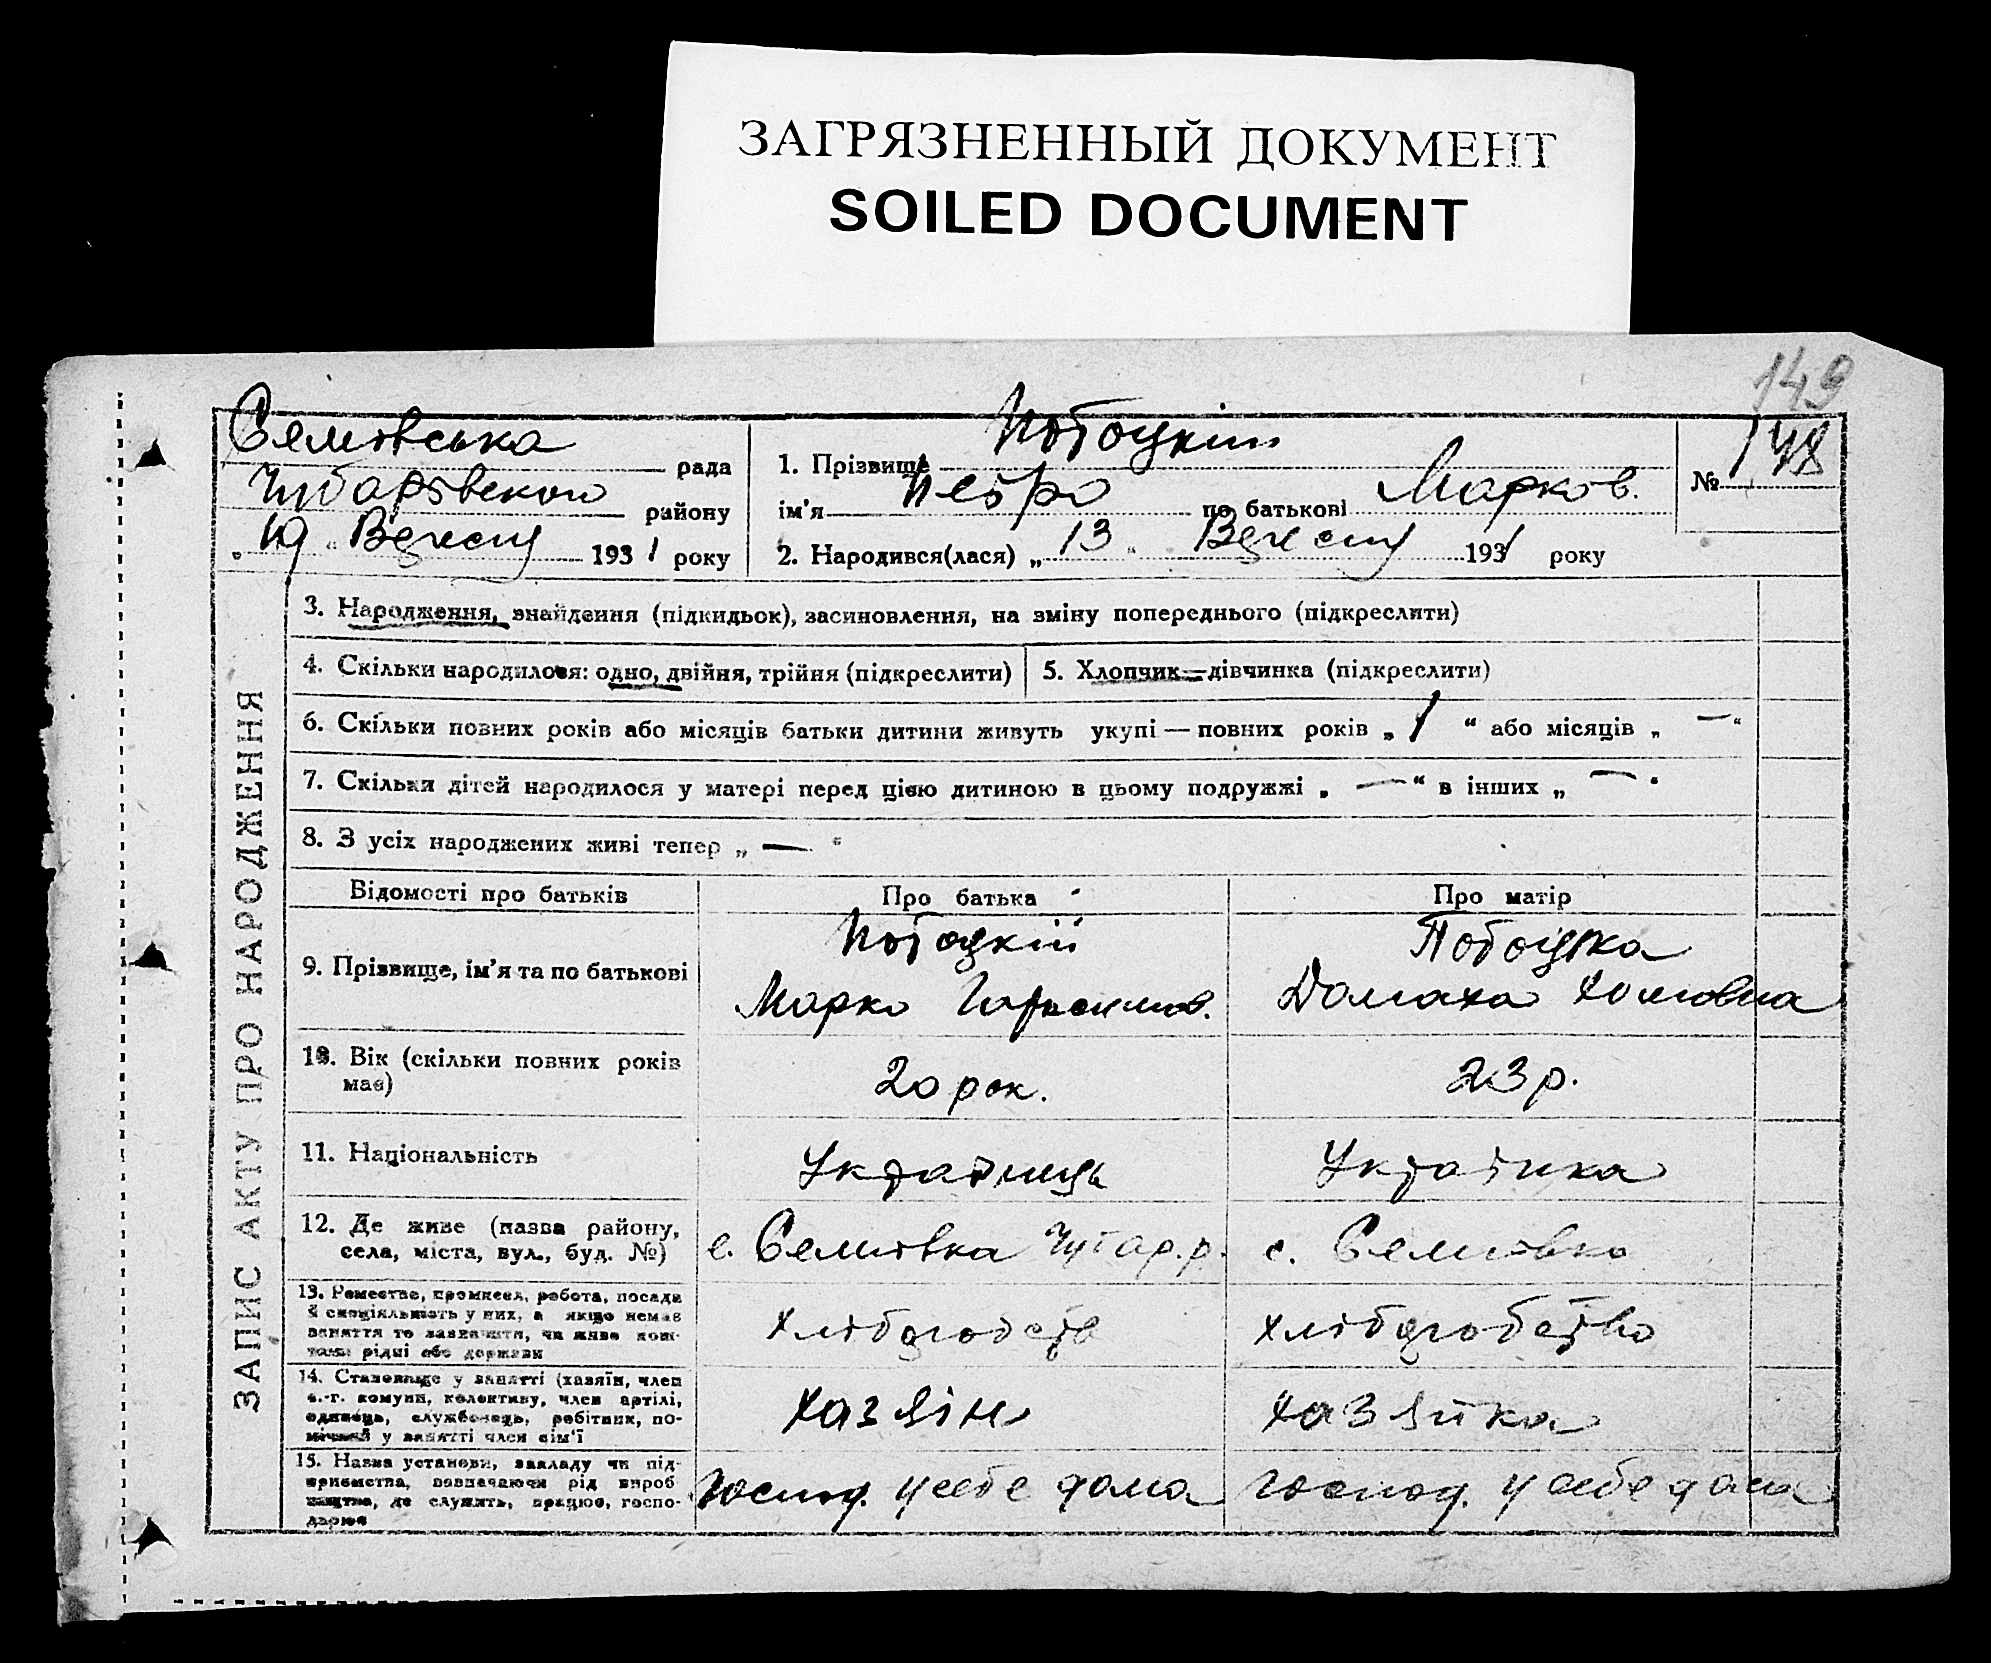 ЗАГРЯЗНЕННЫЙ ДОКУМЕНТ
SOILED DOCUMENT
149
Семівська рада
Чубарівского району
„ 19 “ Вересня 1931 року
1. Прізвище Потоцкій
ім'я Петро по батькові Марков.
2. Народився(лася) „ 13 “ Вересня 1931 року
№ 148
ЗАПИС АКТУ ПРО НАРОДЖЕННЯ
3. Народження, знайдення (підкидьок), засиновлення, на зміну попереднього (підкреслити)
4. Скільки народилося: одно, двійня, трійня (підкреслити)
5. Хлопчик—дівчинка (підкреслити)
6. Скільки повних років або місяців батьки дитини живуть укупі — повних років „ 1 “ або місяців „ — “
7. Скільки дітей народилося у матері перед цією дитиною в цьому подружжі „ — “ в інших „ — “
8. З усіх народжених живі тепер „ — “
Відомості про батьків
Про батька
Про матір
9. Прізвище, ім'я та по батькові
Потоцкій
Марко Гарасимов.
Потоцька
Домаха Хомовна
10. Вік (скільки повних років
має)
20 рок.
23 р.
11. Національність
Українець
Українка
12. Де живе (назва району,
села, міста, вул., буд. №)
с. Семівка Чубар. р.
с. Семівка
13. Ремество, промисел, робота, посада
й спеціяльність у них, а якщо немає
заняття то зазначити, чи живе кош-
тами рідні або держави
Хліборобств
Хліборобство
14. Становище у занятті (хазяїн, член
с.-г. комуни, колективу, член артілі,
одинець, службовець, робітник, по-
мічний у занятті член сім'ї
Хазяін
Хазяйка
15. Назва установи, закладу чи під-
приємства, позначаючи рід вироб
ництва, де служить, працює, госпо-
дарює
Господ. у себе дома
Господ. у себе дома